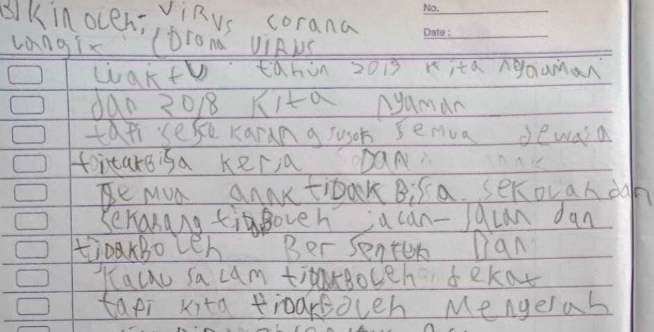 No.
Date:
BiKin oleh: ViRUs corana
Langix Corona ViRUS
waktu tahun 2019 Kita nyauman
dan 2018 Kita nyaman
tapi sekarang susah semua dewasa
tidak Bisa Kerja DAN
semua anak tidak Bisa sekolah dan
Sekarang tidak Boleh jalan-jalan dan
tidak Boleh Bersentuh Dan
Kalau salam tidak Boleh dekat
tapi kita tidak Boleh Mengerah